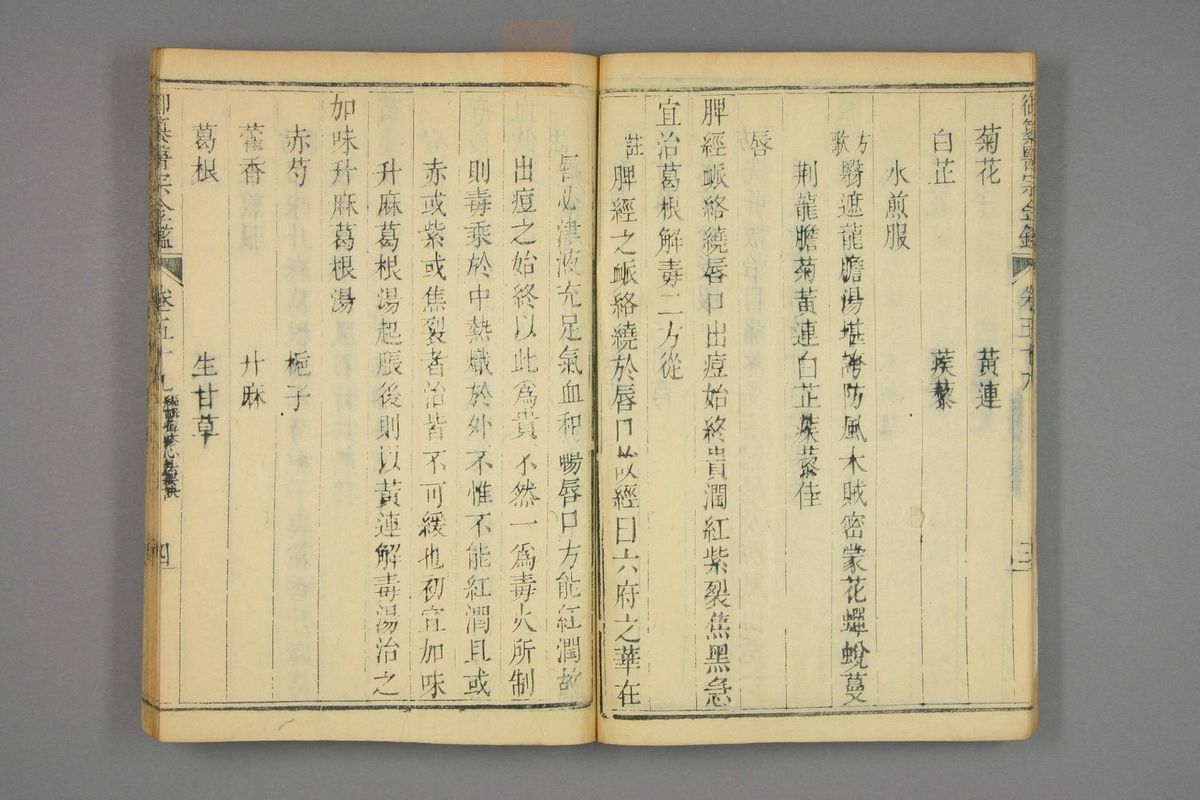 御纂醫宗金鑑 卷五十九 三
菊花 黃連
白芷 蒺藜
水煎服
方歌 翳遮龍膽湯堪誇防風木賊密蒙花蟬蛻蔓
荆龍膽菊黃連白芷蒺藜佳
唇
脾經衇絡繞唇口出痘始終貴潤紅紫裂焦黑急
宜治葛根解毒二方從
註 脾經之衇絡繞於唇口故經曰六府之華在
唇必津液充足氣血和暢唇口方能紅潤故
出痘之始終以此爲貴不然一爲毒火所制
則毒乘於中熱熾於外不惟不能紅潤且或
赤或紫或焦裂者治皆不可緩也初宜加味
升麻葛根湯起脹後則以黃連解毒湯治之
加味升麻葛根湯
赤芍 梔子
藿香 升麻
葛根 生甘草
御纂醫宗金鑑 卷五十九 心法要訣 四